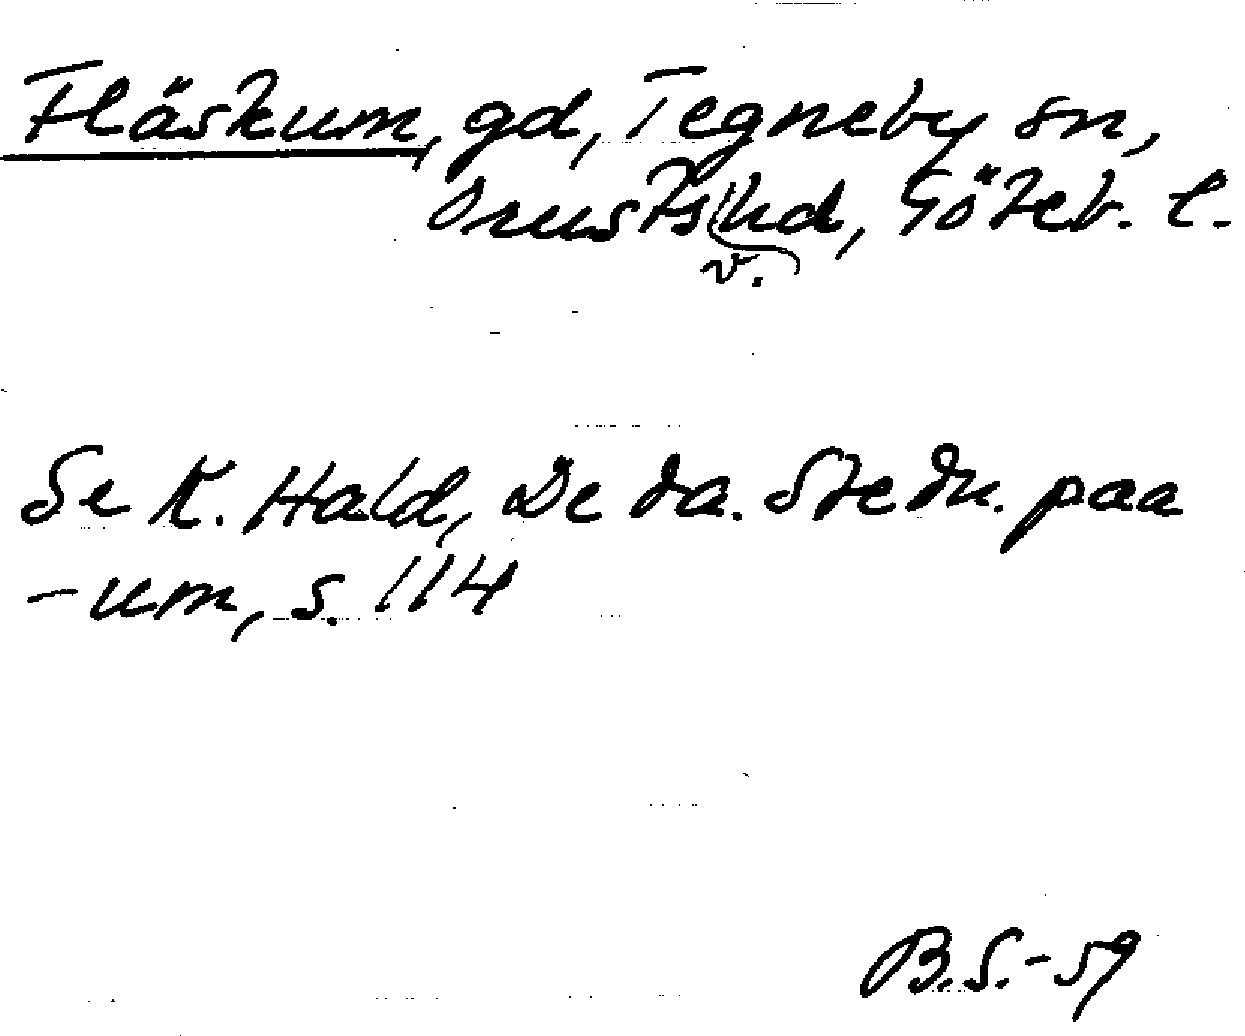 Fläskum, gd, Tegneby sn,
Orusts hd, Göteb. l.
v.
Se K. Hald, De da. Stedn. paa
-um, s. 114
B.S.-59